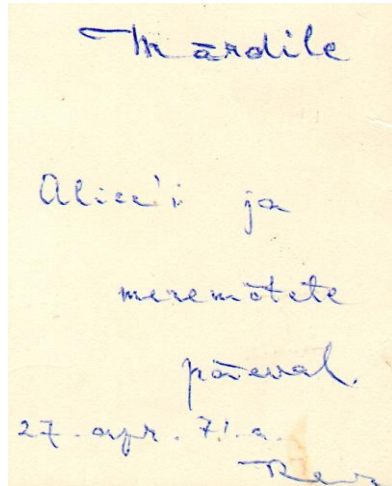 Märdile
Alice'i ja
meremõtete
päeval.
27. apr. 71. a.